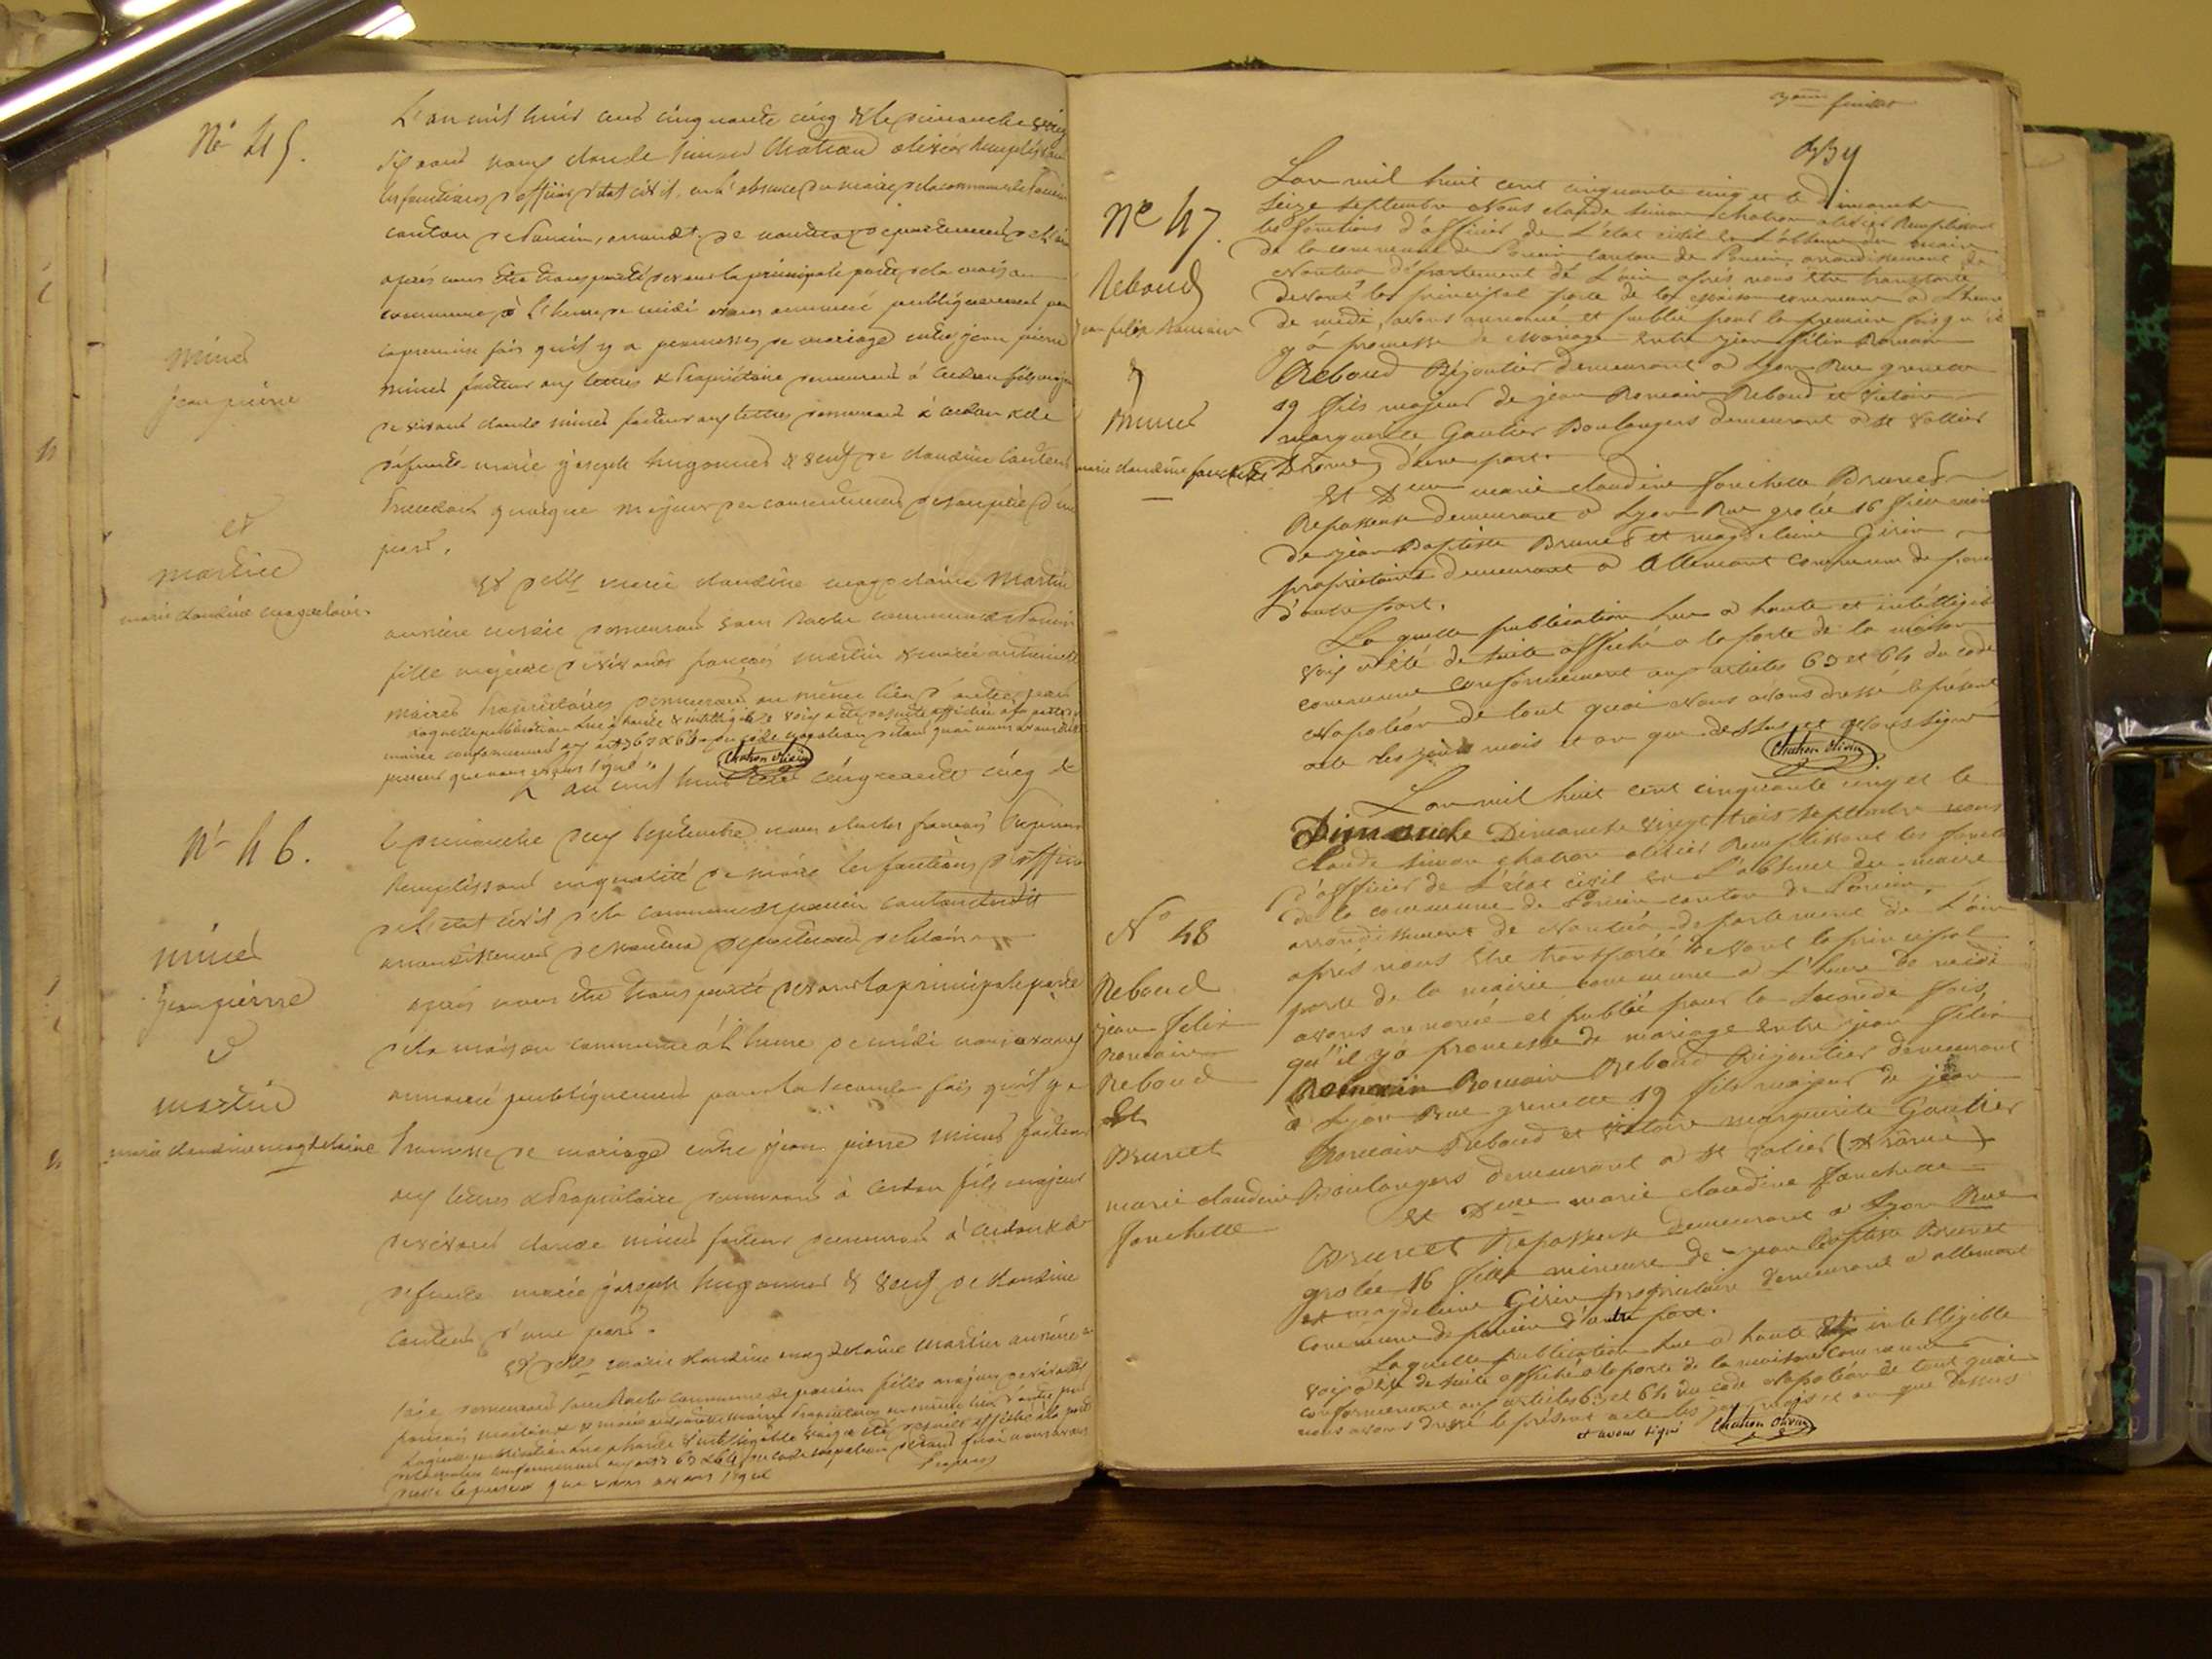 N° 45.
mines
jean pierre
et
martin
marie claudine magdelaine
L'an mil huit cent cinquante cinq & le dimanche
nous claude simon Chatron olivier Remplissant
les fonctions d'officier d'état civil, en l'absence du maire de la commune de Poncin
canton de Poncin, arrondt. de nantua departement de l'ain
après nous être transporté devant la principale porte de la maison
commune à l'heure de midi avons annoncé publiquement pour
la première fois qu'il y a promesses de mariage entre jean pierre
mines facteur aux lettres & Propriétaire demeurant à fils majeur
de vivant claude mines facteur aux lettres demeurant à & de
défunte marie joseph hugonnet & veuf de claudine
quoique majeur du consentement de son père d'une
part.
Et delle marie claudine magdelaine Martin
demeurant sous Roche commune de Poncin
fille majeure de vivants françois martin & marie antoinette
Propriétaires demeurant au même lieu d'autre part
laquelle publication lue à haute & intelligible voix a été de suite affichée à la porte de la
mairie conformément aux arts 63 & 64 du code napoléon de tout quoi nous avons dressé
présent que nous avons signé.
Chatron Olivier
N° 46.
mines
jean pierre
&
martin
marie claudine magdelaine
L'an mil huit cent cinquante cinq &
le dimanche septembre nous françois
Remplissant en qualité de maire les fonctions d'officier
de l'état civil de la commune de poncin canton
arrondissement de nantua departement de l'ain
après nous être transporté devant la principale porte
de la maison commune à l'heure de midi nous avons
annoncé publiquement pour la seconde fois qu'il y a
Promesse de mariage entre jean pierre mines facteur
aux lettres & Propriétaire demeurant à fils majeur
de vivant claude mines facteur demeurant à & de
défunte marie joseph hugonnet & veuf de claudine
d'une part.
Et delle marie claudine magdelaine martin
demeurant sous Roche commune de poncin fille majeure de vivants
françois martin & de marie antoinette Propriétaires au même lieu d'autre part
Laquelle publication lue à haute & intelligible voix a été de suite affichée à la porte
de la mairie conformément aux arts 63 & 64 du code napoléon de tout quoi nous avons
dressé le présent que nous avons signé
feuillet
N° 47.
Reboud
jean felix Romain
&
Brunet
marie claudine fanchette
L'an mil huit cent cinquante cinq et le Dimanche
seize septembre Nous claude simon chatron olivier Remplissant
les fonctions d'officier de L'état civil en L'absence du maire
de la commune de Poncin canton de Poncin, arrondissement de
Nantua département de L'ain après nous être transporté
devant la principal porte de la maison commune à L'heure
de midi, avons annoncé et publié pour la premier fois qu'il
y a promesse de mariage entre jean félix Romain
Reboud Bijoutier demeurant à Lyon Rue grenette
19 fils majeur de jean Romain Reboud et victoire
marguerite Gautier Boulangers demeurant à St Vallier
Drome, d'une part.
Et Delle marie claudine fanchette Brunet
Repasseuse demeurant à Lyon Rue grolée 16 fille mineure
de jean Baptiste Brunet et magdeleine Girin
propriétaires demeurant à Allemant commune de poncin
d'autre part.
Laquelle publication lue à haute et intelligible
voix a été de suite affiché à la porte de la maison
commune conformément aux articles 63 et 64 du code
Napoléon de tout quoi Nous avons dressé le présent
acte les jours mois et an que dessus et avons signé
Chatron Olivier
N° 48
Reboud
jean felix
Romain
Reboud
Et
Brunet
marie claudine
fanchette
L'an mil huit cent cinquante cinq et le
Dimanche Dimanche vingt trois septembre nous
Claude simon chatron olivier Remplissant les fonctions
d'officier de L'état civil en L'absence du maire
de la commune de Poncin canton de Poncin,
arrondissement de Nantua, departement de L'ain
après nous être transporté devant la principal
porte de la mairie commune à L'heure de midi
avons annoncé et publié pour la seconde fois
qu'il y a promesse de mariage entre jean félix
Romain Romain Reboud Bijoutier demeurant
à Lyon Rue grenette 19 fils majeur de jean
Romain Reboud et victoire marguerite Gautier
Boulangers demeurant à St Valier (Drôme)
Et Delle marie claudine fanchette
Brunet Repasseuse demeurant à Lyon Rue
grolée 16 fille mineure de jean Baptiste Brunet
et magdeleine Girin propriétaire demeurant à allemant
commune de poncin d'autre part.
Laquelle publication lue à haute et intelligible
voix a été de suite affiché à la porte de la maison commune
conformement aux articles 63 et 64 du code napoléon de tout quoi
nous avons dressé le présent acte les jour mois et an que dessus
et avons signé Chatron Olivier